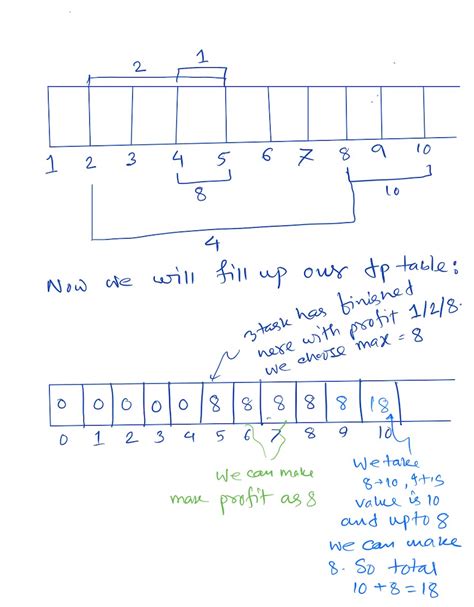 1
2
1 2 3 4 5 6 7 8 9 10
8
10
4
Now we will fill up our dp table:
3 task has finished
here with profit 1/2/8.
we choose max = 8
0 0 0 0 0 8 8 8 8 8 18
0 1 2 3 4 5 6 7 8 9 10
We can make
max profit as 8
We take
8→10, it's
value is 10
and upto 8
we can make
8. So total
10+8=18